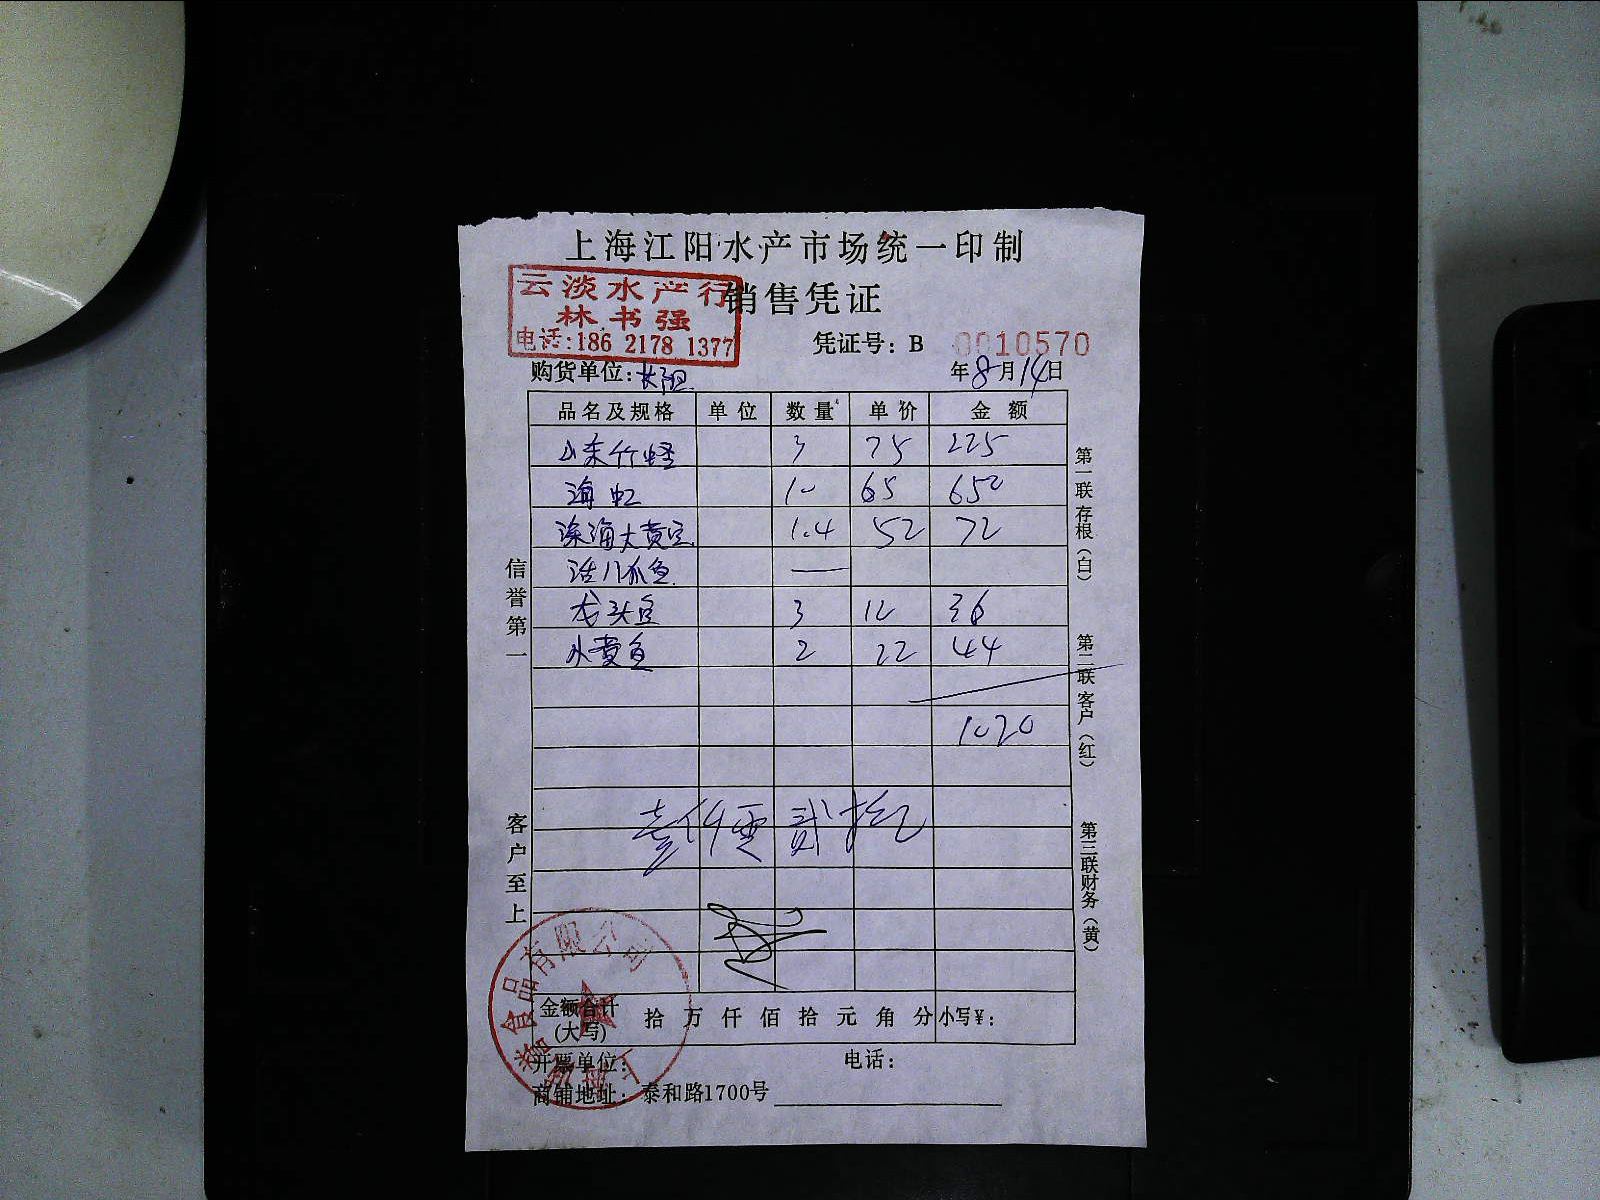 上海江阳水产市场统一印制
云淡水产行
林书强
电话:186 2178 1377
销售凭证
凭证号:B 0010570
购货单位:
年8月14日
品名及规格 单位 数量 单价 金额
山东竹蛏 3 75 225
海虹 10 65 650
深海大黄鱼 1.4 52 72
活八爪鱼 —
龙头鱼 3 12 36
小黄鱼 2 22 44
1020
壹仟零贰拾元
信誉第一
客户至上
第一联存根(白)
第二联客户(红)
第三联财务(黄)
食品有限公司
金额合计
(大写) 拾万仟佰拾元角分 小写¥:
开票单位: 电话:
商铺地址:泰和路1700号